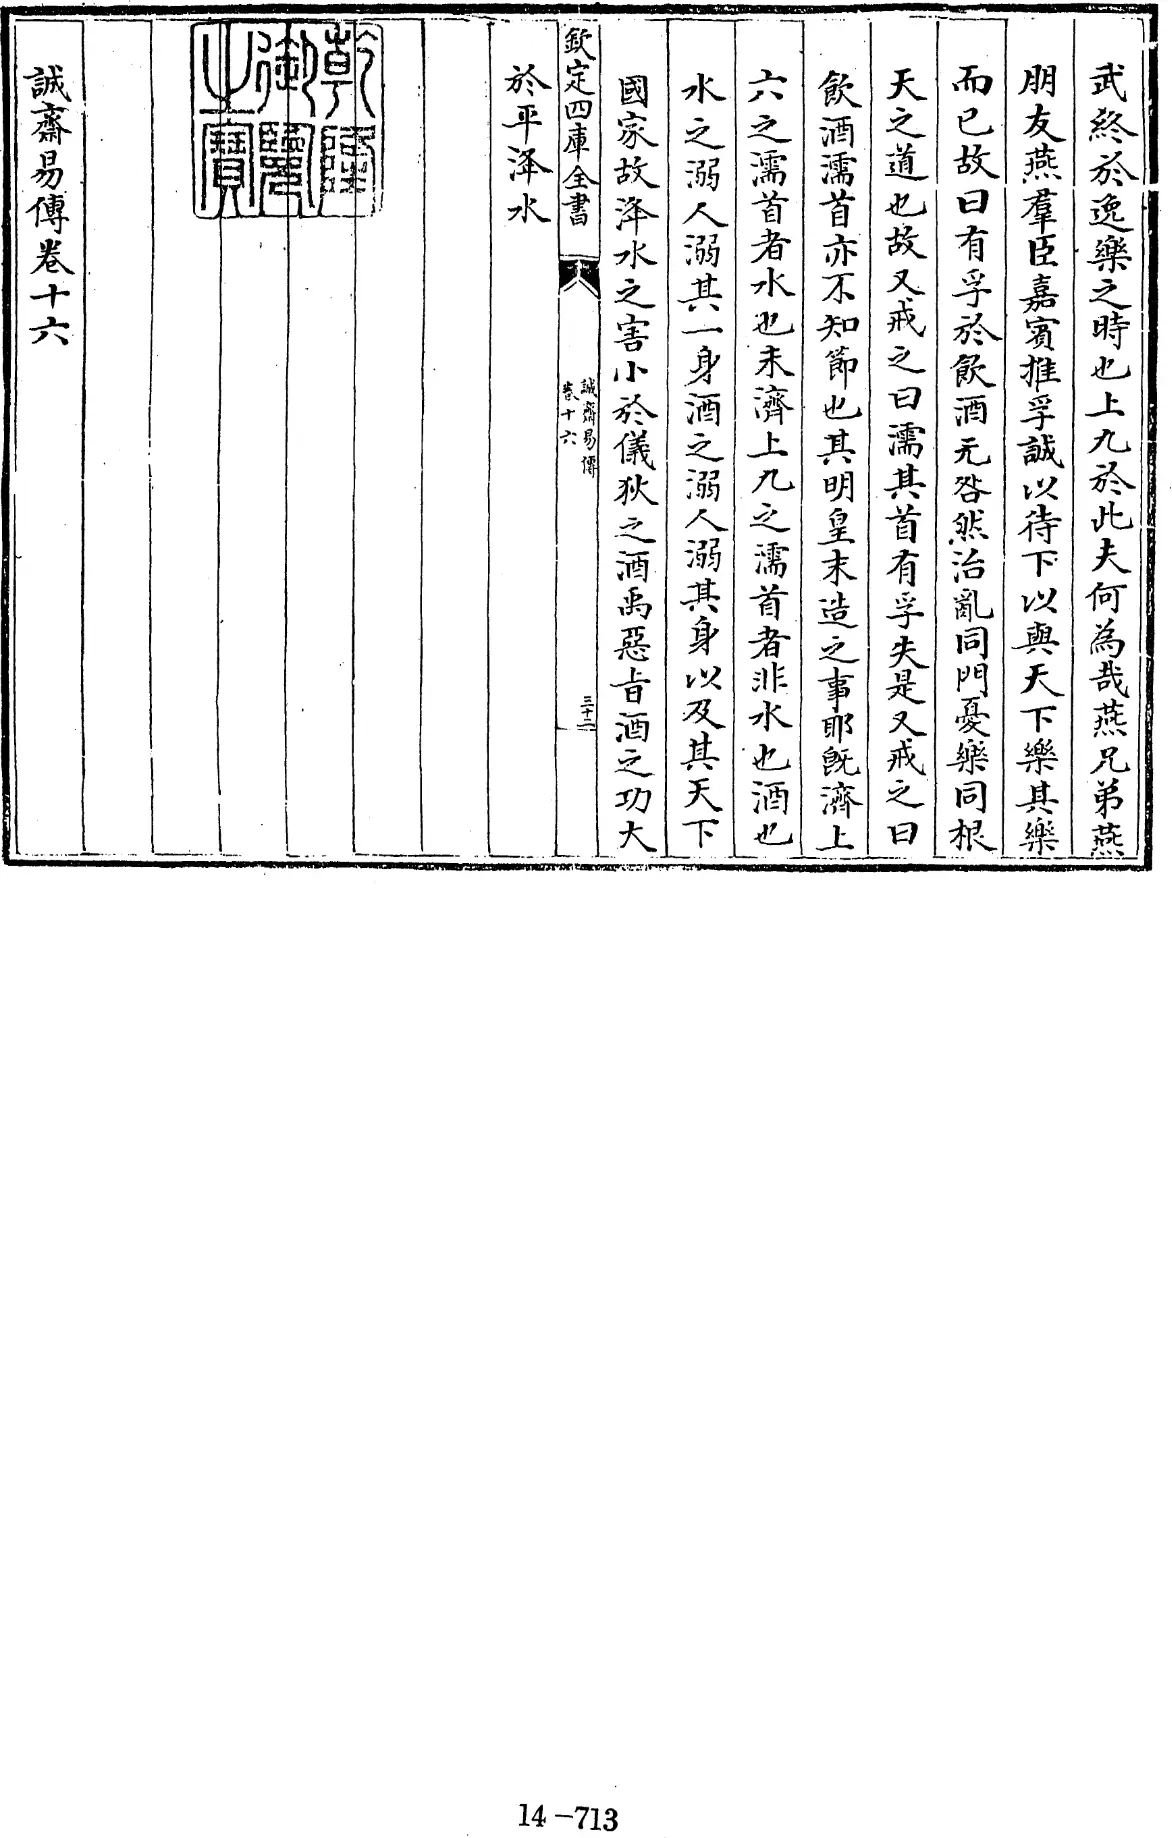 武終於逸樂之時也上九於此夫何為哉燕兄弟燕
朋友燕羣臣嘉賓推孚誠以待下以與天下樂其樂
而已故曰有孚於飲酒无咎然治亂同門憂樂同根
天之道也故又戒之曰濡其首有孚失是又戒之曰
飲酒濡首亦不知節也其明皇末造之事耶既濟上
六之濡首者水也未濟上九之濡首者非水也酒也
水之溺人溺其一身酒之溺人溺其身以及其天下
國家故洚水之害小於儀狄之酒禹惡旨酒之功大
欽定四庫全書
誠齋易傳
卷十六
三十二
於平洚水
乾隆
御覽
之寶
誠齋易傳卷十六
14-713